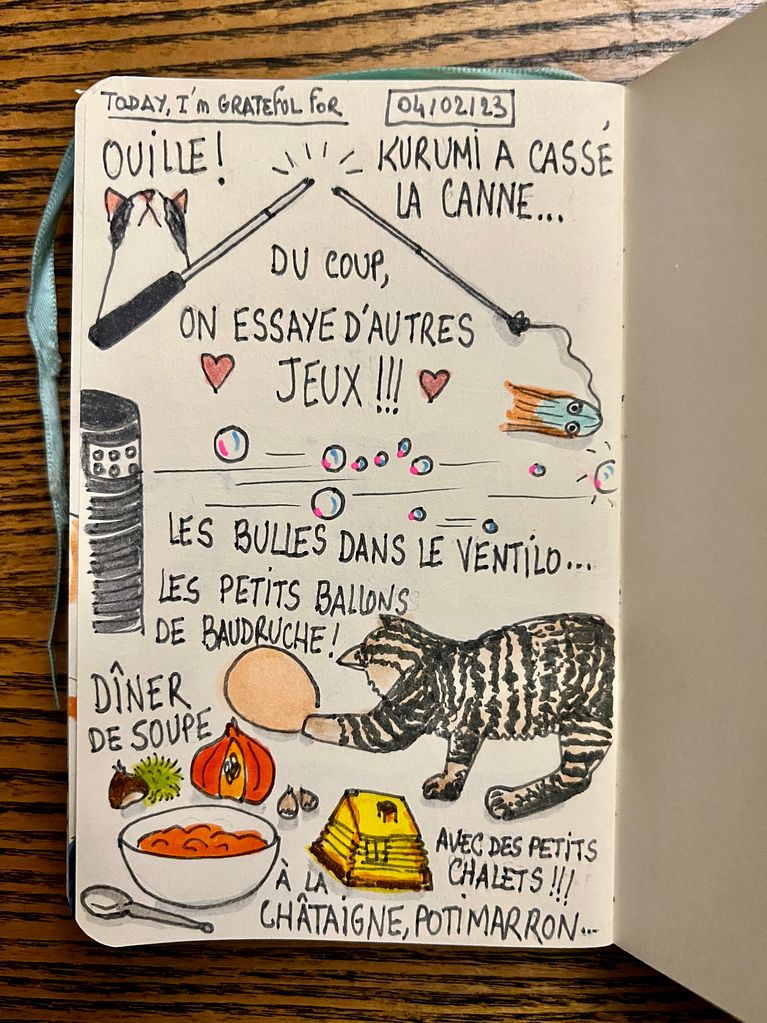 TODAY, I'm GRATEFUL FOR
04/02/23
OUILLE !
KURUMI A CASSÉ
LA CANNE...
DU COUP,
ON ESSAYE D'AUTRES
JEUX !!!
LES BULLES DANS LE VENTILO...
LES PETITS BALLONS
DE BAUDRUCHE !
DÎNER
DE SOUPE
À LA
CHÂTAIGNE, POTIMARRON...
AVEC DES PETITS
CHALETS !!!